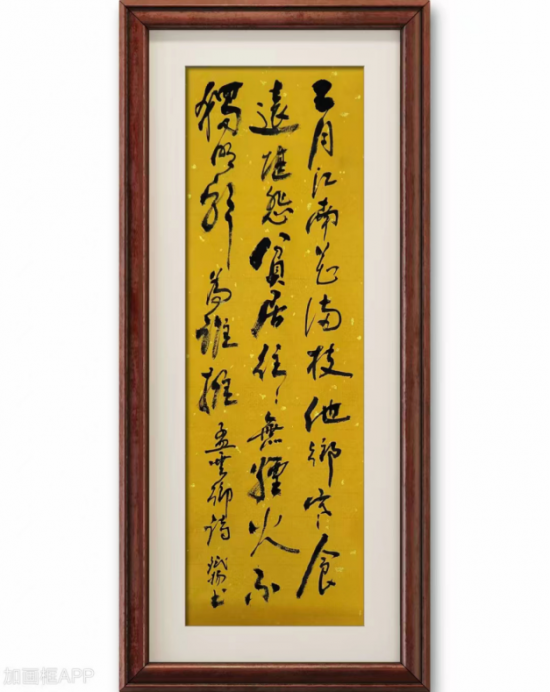 二月江南花满枝他鄉寒食
遠堪悲貧居往往無煙火不
獨明朝為誰推 孟雲卿詩 書
加画框APP